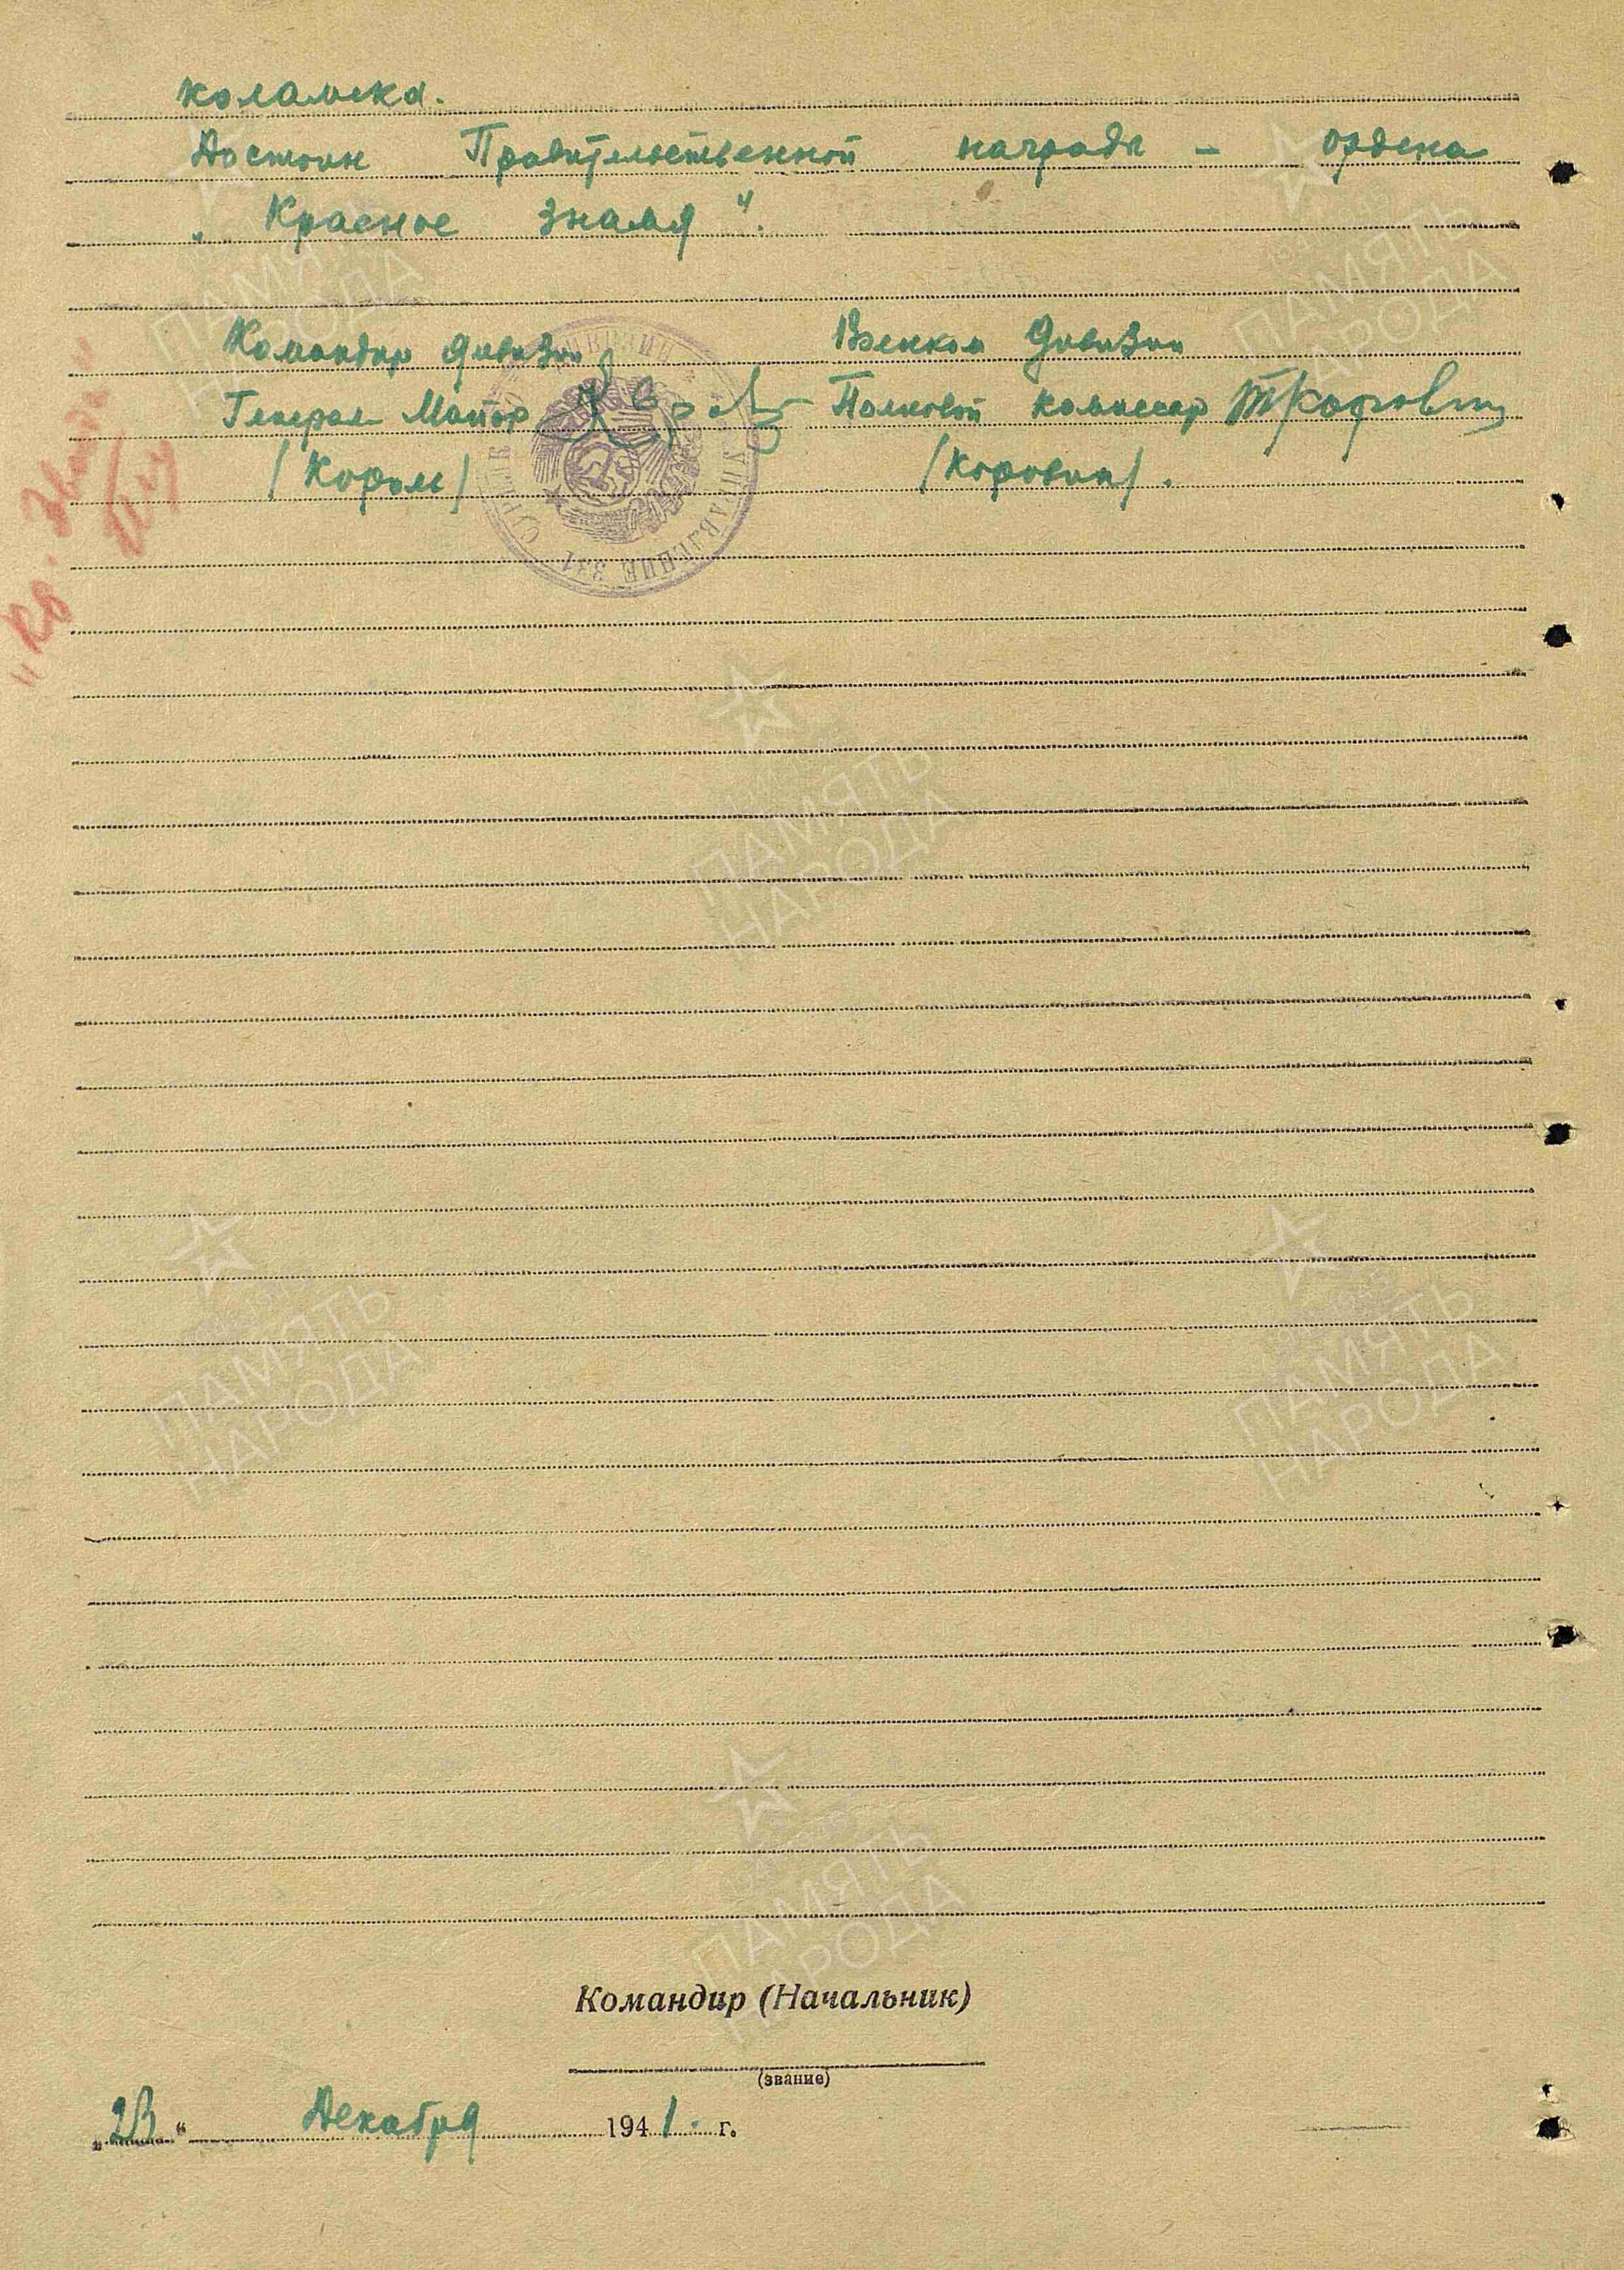 коламска.
Достоин Правительственной награды - ордена
„Красное Знамя".
Командир дивизии Военком Дивизии
Генерал-Майор Полковой комиссар
/Король/ /Коровин/.
„Кр. Звезда"
УПРАВЛЕНИЕ
ПАМЯТЬ
НАРОДА
Командир (Начальник)
(звание)
„23" Декабря 1941. г.